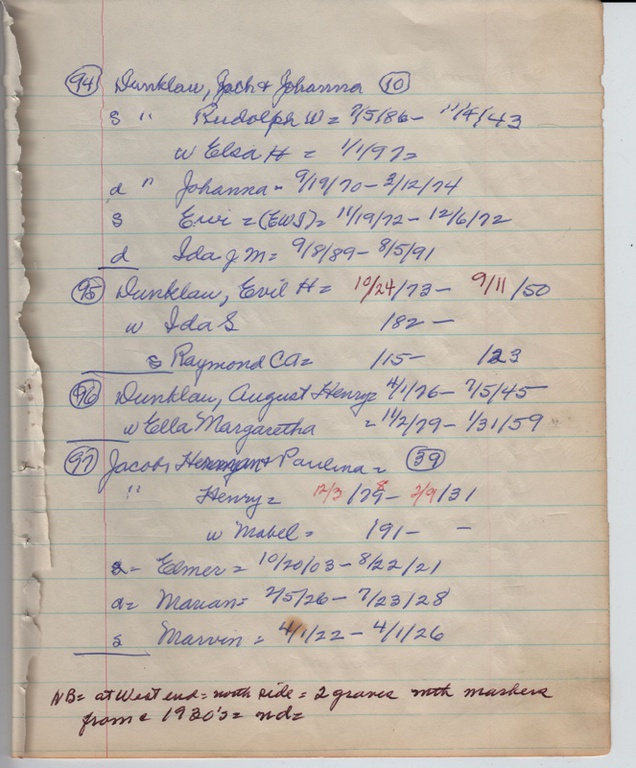 (94) Dunklau, Joch & Johanna (10)
s " Rudolph W = 7/5/86 - 11/4/43
w Elsa H = 1/1/97 =
d " Johanna - 9/19/70 - 3/12/74
s Ewi = (EWS) = 11/19/72 - 12/6/72
d Ida J M = 9/8/89 - 8/5/91
(95) Dunklau, Evil H = 10/24/73 - 9/11/50
w Ida S /82 -
s Raymond CA = /15 - /23
(96) Dunklau, August Henry = 4/1/76 - 7/5/45
w Ella Margaretha = 11/2/79 - 1/31/59
(97) Jacobs Herman & Paulina = (39)
" Henry = 12/3/79 8 - 2/9/31
w Mabel = 191- -
s = Elmer = 10/20/03 - 8/22/21
d = Marian = 2/5/26 - 7/23/28
s Marvin = 4/1/22 - 4/1/26
NB = at West end = north side = 2 graves with markers
from c 1930's = nd =